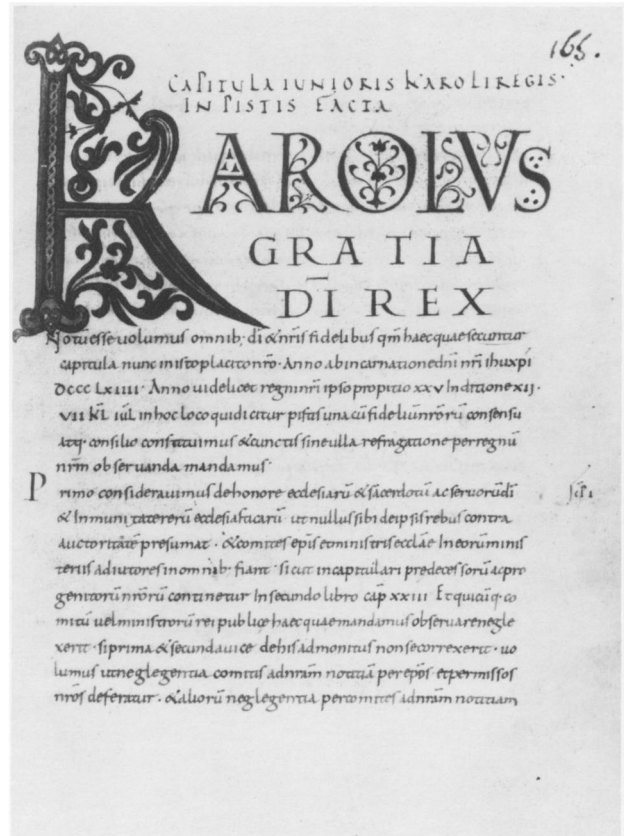 165.
CAPITULA IUNIORIS KAROLI REGIS·
IN PISTIS FACTA
KAROLVS
GRATIA
DI REX
Notū esse uolumus omnib; dī & nr̄is fidelibus qm̄ haec quae secuntur
capitula nunc in isto placito nr̄o· Anno ab incarnatione dn̄i nr̄i ihu xp̄i
DCCC LXIIII· Anno uidelicet regni nr̄i ipso propitio xxv Indictione xii·
VII KL̄ IUL̄ in hoc loco qui dicitur pistis una cū fideliū nr̄orū consensu
atq· consilio constituimus & cunctis sine ulla refragatione per regnū
nr̄m obseruanda mandamus·
Primo considerauimus de honore ecclesiarū & sacerdotū ac seruorū dī
& Inmunitate rerū ecclesiasticarū· ut nullus sibi de ipsis rebus contra
auctoritatē presumat· & comites ep̄is et ministris ecclae In eorū minis
teriis adiutores in omnib; fiant· sicut in capitulari predecessorū ac pro
genitorū nr̄orū continetur In secundo libro cap̄ xxiii Et quicūq· co
mitū uel ministrorū rei publicae haec quae mandamus obseruare negle
xerit· si prima & secunda uice de his admonitus non se correxerit· uo
lumus ut neglegentia comitis ad nr̄am notitiā per ep̄os et per missos
nr̄os deferatur· & aliorū neglegentia per comites ad nr̄am notitiam